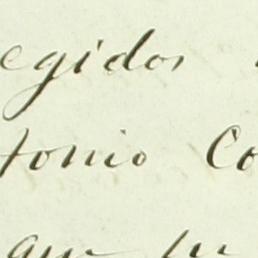 egidos
tonio Co
que su